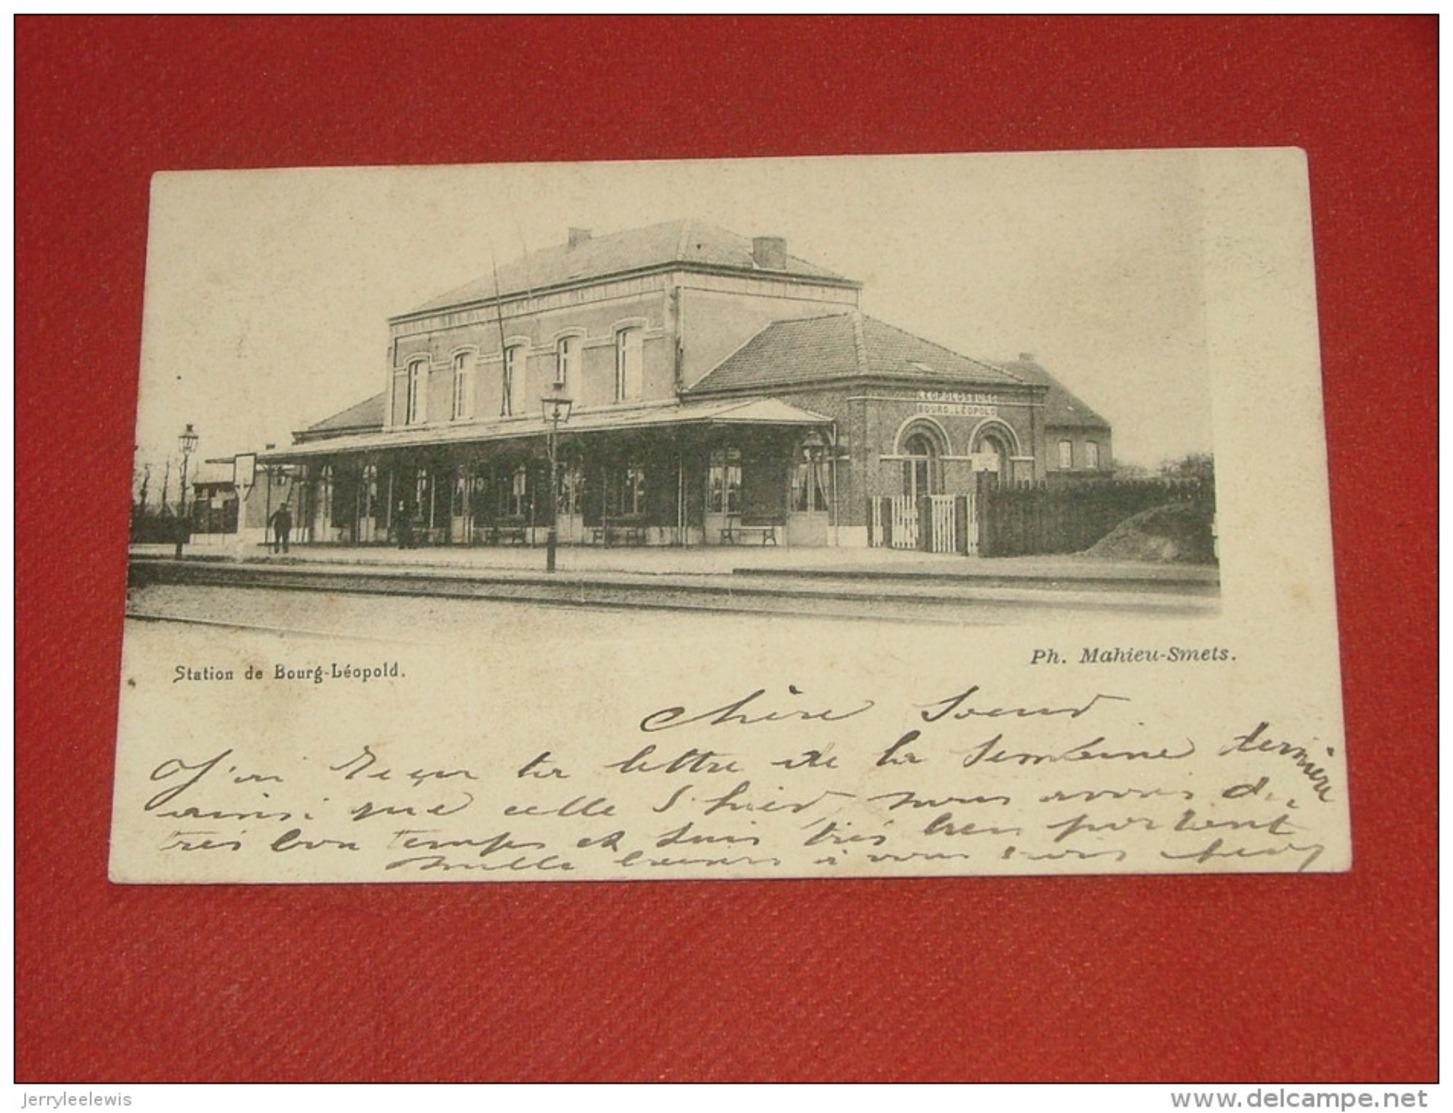 LEOPOLDSBURG
BOURG-LÉOPOLD
Station de Bourg-Léopold.
Ph. Mahieu-Smets.
Chère Soeur
J'ai Reçu ta lettre de la Semaine dernière
ainsi que celle d'hier, nous avons du
très bon temps et suis très bien portant
mille baisers à vous
jerryleelewis
www.delcampe.net